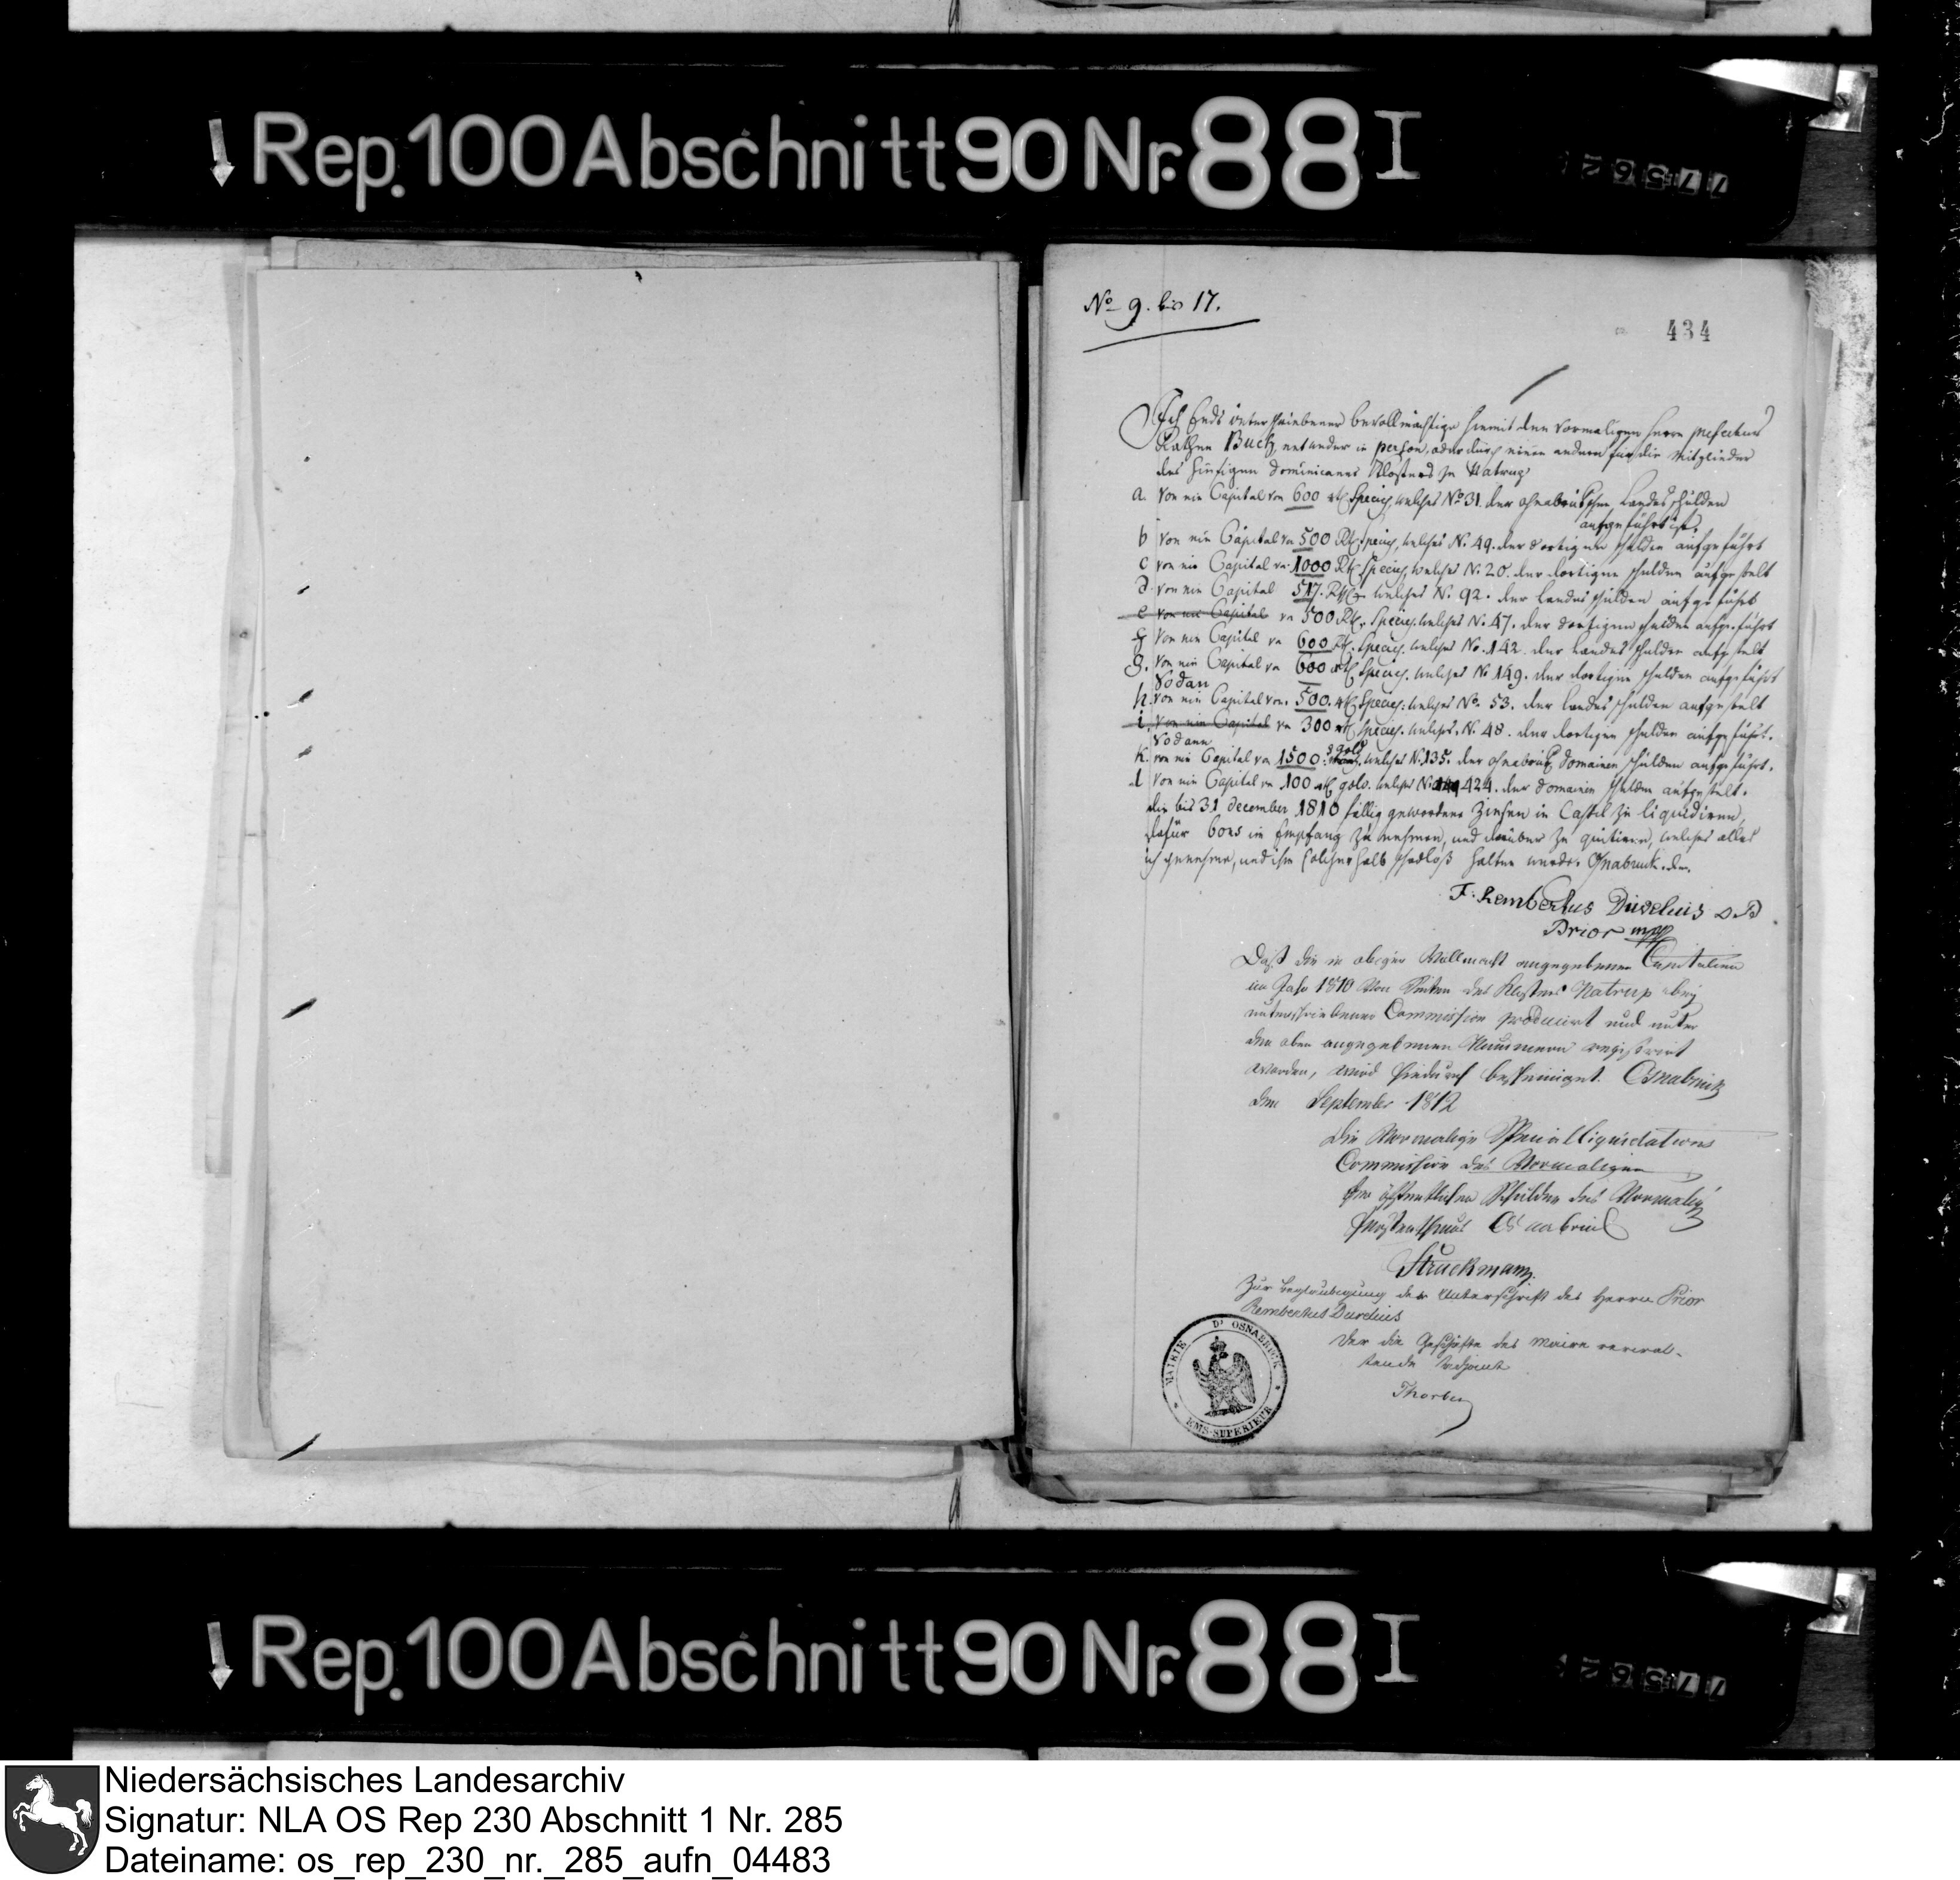 Rep. 100 Abschnitt 90 Nr. 88 I
77562
No 9. bis 17.
434
Ich Ends unterschriebener bevollmächtige hiemit den vormaligen Herrn prefectur
Rathen Buch, entweder in person, oder durch einen andern für die Mitglieder
des hiesigen Dominicaner Klosters zu Natrup
a. von ein Capital von 600 Rtl Species, welches No 31. der osnabrükschen Landes schulden
aufgeführt ist,
b von ein Capital von 500 Rtl. Species, welches N. 49. der dortigen schulden aufgeführt
c von ein Capital von 1000 Rtl Species, welches N. 20. der dortigen schulden aufgestelt
d. von ein Capital 517. Rtl welches N. 92. der Landes schulden aufgeführt
e von ein Capital von 500 Rtl. Species. welches N. 47. der dortigen schulden aufgeführt
f von ein Capital von 600 Rtl. Species. welches No. 142. der Landes schulden aufgestelt
g. von ein Capital von 600 Rtl Species. welches N. 149. der dortigen schulden aufgeführt
sodan
h. von ein Capital von. 500. Rtl Species: welches No. 53. der Landes schulden aufgestelt
i. von ein Capital von 300 Rtl Species. welches. N. 48. der dortigen schulden aufgeführt.
sodann
k. von ein Capital von 1500 gold welches N. 135. der osnabrük Domainen schulden aufgeführt.
l von ein Capital von 100 Rtl gold. welches N. 424. der Domainen schulden aufgestelt.
die bis 31 december 1810 fällig gewordene Zinsen in Cassel zu liquidiren,
dafür bons in Empfang zu nehmen, und darüber zu quitiren, welches alles
ich genehme, und ihn solcherhalb schadloß halten werde. Osnabruck. den.
F. Rembertus Duvelius
Prior mpp
Daß die in obiger Vollmacht angegebenen Capitalien
im Jahr 1810 von Seiten des Klosters Natrup bey
unterschriebener Commission producirt und unter
den oben angegebenen Nummern registrirt
worden, wird hiedurch bescheiniget. Osnabrück
den September 1812
Die vormalige Special Liquidations
Commission des vormaligen
der öffentlichen Schulden des vormalig
Fürstenthums Osnabrück
Struckmann.
Zur Beglaubigung der Unterschrift des Herrn Prior
Rembertus Duvelius
Der die Geschäfte des Maire verwal-
tende Adjoint
MAIRIE D' OSNABRUCK
EMS-SUPERIEUR
Rep. 100 Abschnitt 90 Nr. 88 I
77562
Niedersächsisches Landesarchiv
Signatur: NLA OS Rep 230 Abschnitt 1 Nr. 285
Dateiname: os_rep_230_nr._285_aufn_04483